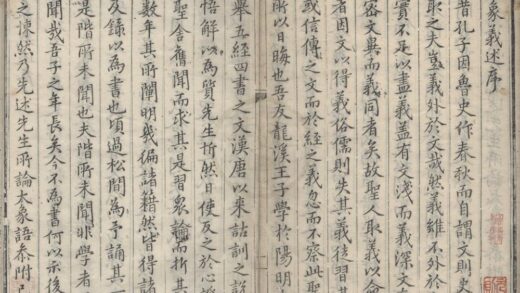 象義述序
昔孔子因魯史作春秋而自謂文則史
取之夫豈義外於文哉然義雖不外於
實不足以盡義蓋有文淺而義深文
密文異而義同者矣故聖人取義以命
者因文以得義俗儒則失其義徒習其
或信傳之文而於經之義忽而不察此聖
所以日晦也吾友龍溪王子學於陽明
舉五經四書之文漢唐以來詁訓之說
悟解以為質先生忻然曰使反之於心
聖舍舊聞而求其是習眾論而折其
數年其所闡明幾徧諸籍然皆得諸
友錄以為書也頃過松間為予誦其
是階所未聞也夫階所未聞非學者
聞哉吾子之年長矣今不為書何以示後
之悚然乃先述先生所論大象語忝附